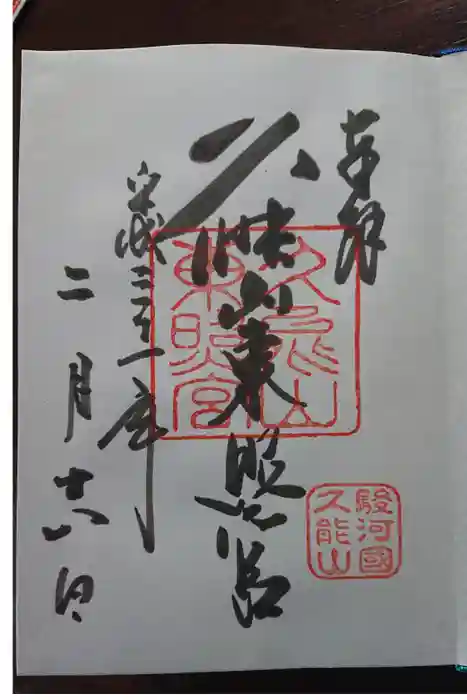 奉拝
久能山東照宮
久能山
東照宮
駿河國
久能山
平成三十一年
二月十六日